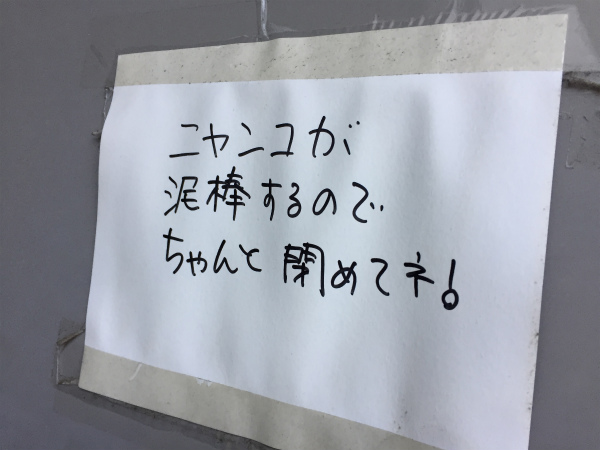 ニャンコが
泥棒するので
ちゃんと閉めてネ!